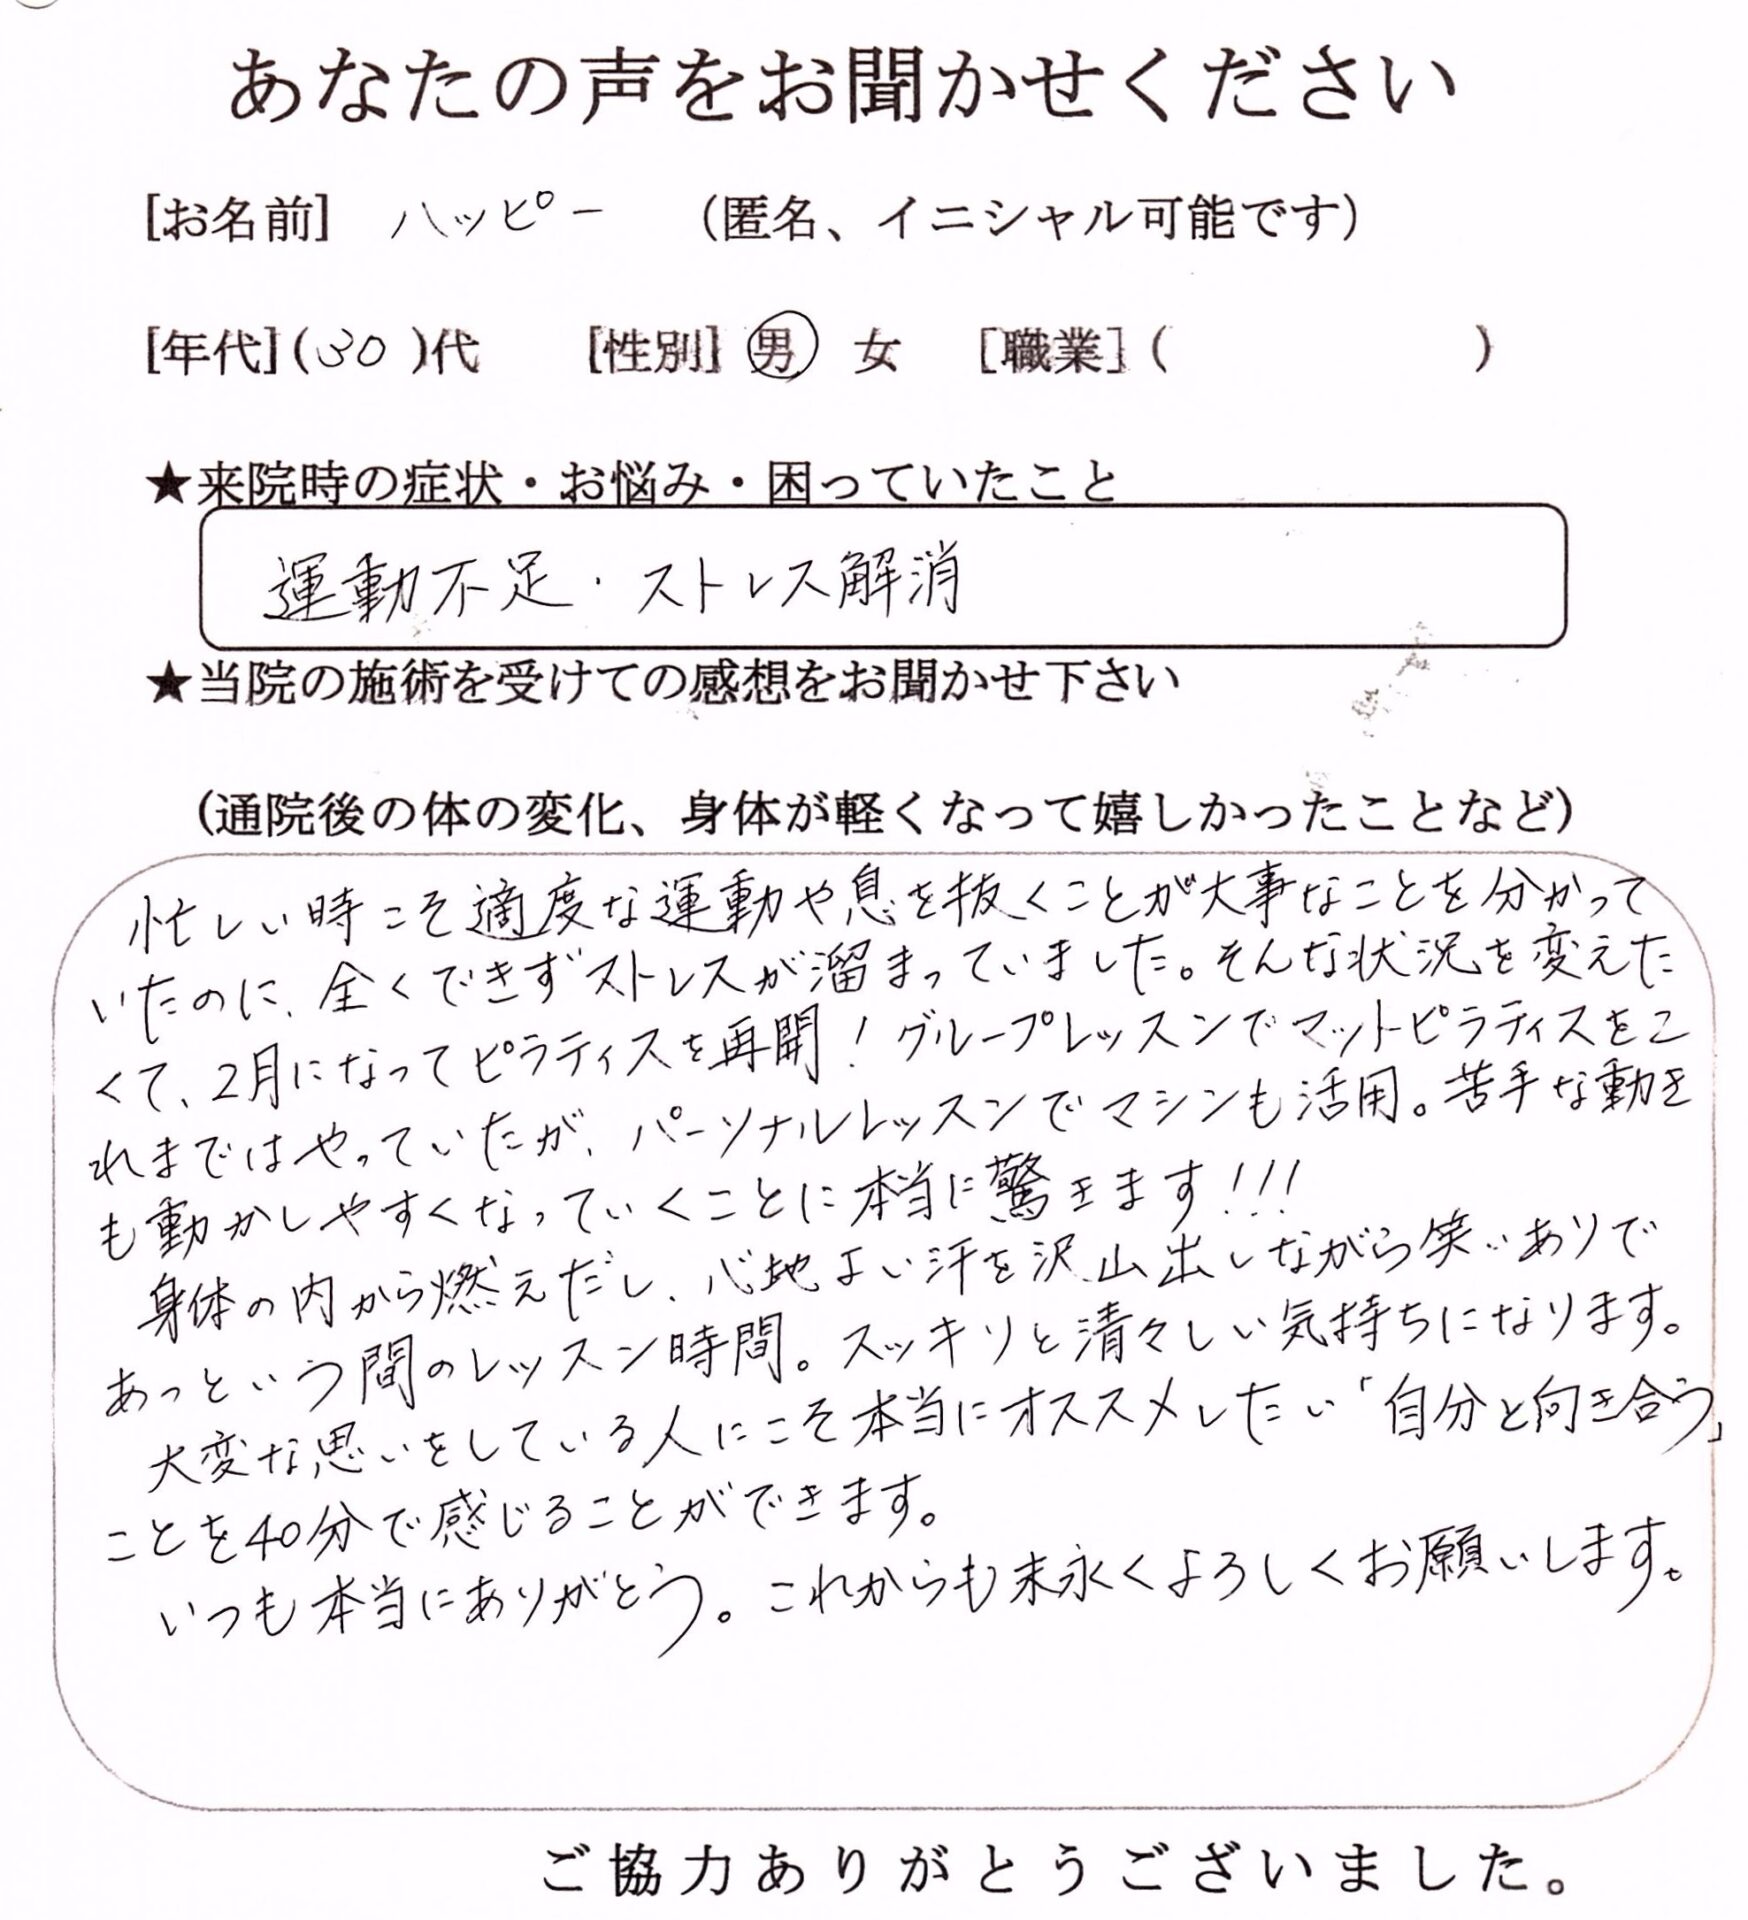 あなたの声をお聞かせください
[お名前] ハッピー (匿名、イニシャル可能です)
[年代](30)代 [性別] 男 女 [職業]( )
★来院時の症状・お悩み・困っていたこと
運動不足・ストレス解消
★当院の施術を受けての感想をお聞かせ下さい
(通院後の体の変化、身体が軽くなって嬉しかったことなど)
忙しい時こそ適度な運動や息を抜くことが大事なことを分かって
いたのに、全くできずストレスが溜まっていました。そんな状況を変えた
くて、2月になってピラティスを再開!グループレッスンでマットピラティスをこ
れまではやっていたが、パーソナルレッスンでマシンも活用。苦手な動き
も動かしやすくなっていくことに本当に驚きます!!!
身体の内から燃えだし、心地よい汗を沢山出しながら笑いありで
あっという間のレッスン時間。スッキリと清々しい気持ちになります。
大変な思いをしている人にこそ本当にオススメしたい「自分と向き合う」
ことを40分で感じることができます。
いつも本当にありがとう。これからも末永くよろしくお願いします。
ご協力ありがとうございました。